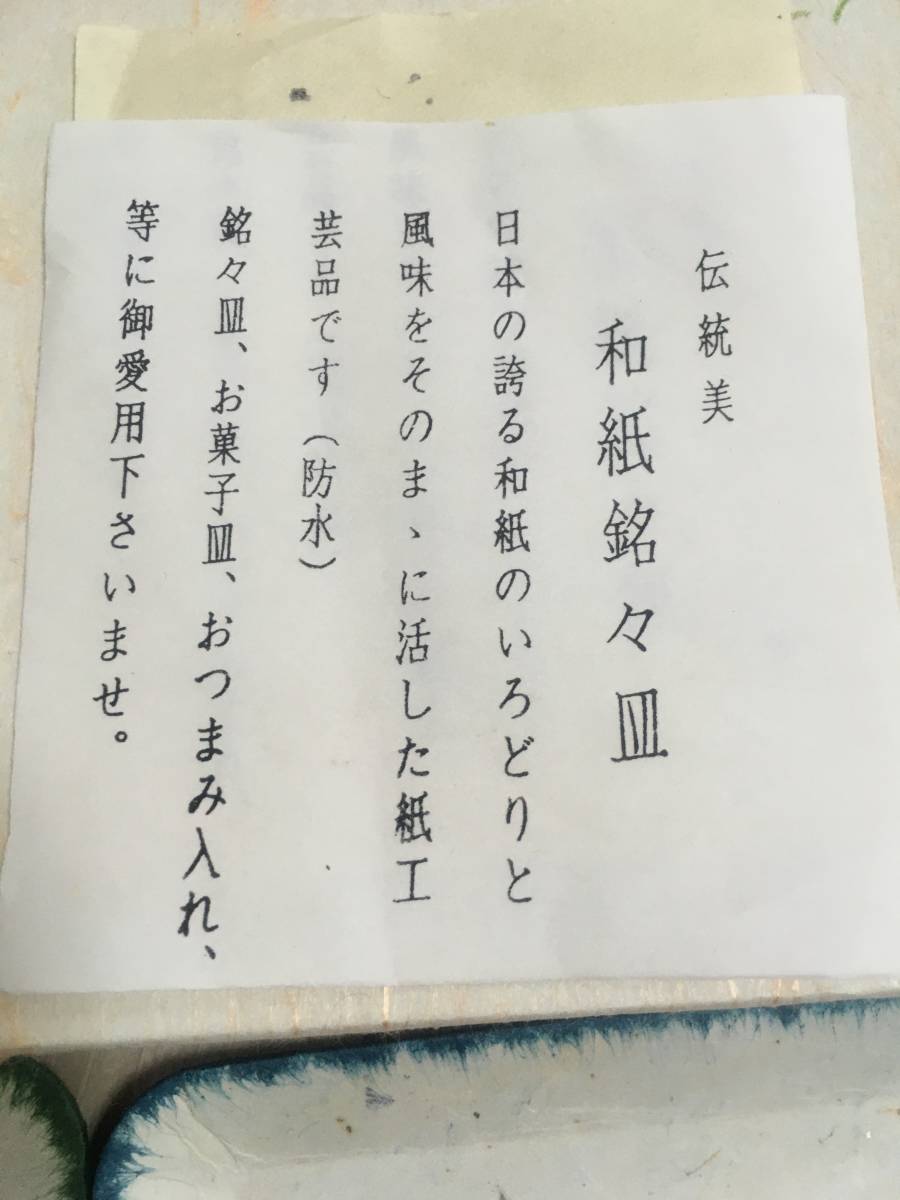 伝統美
和紙銘々皿
日本の誇る和紙のいろどりと
風味をそのまゝに活した紙工
芸品です(防水)
銘々皿、お菓子皿、おつまみ入れ、
等に御愛用下さいませ。